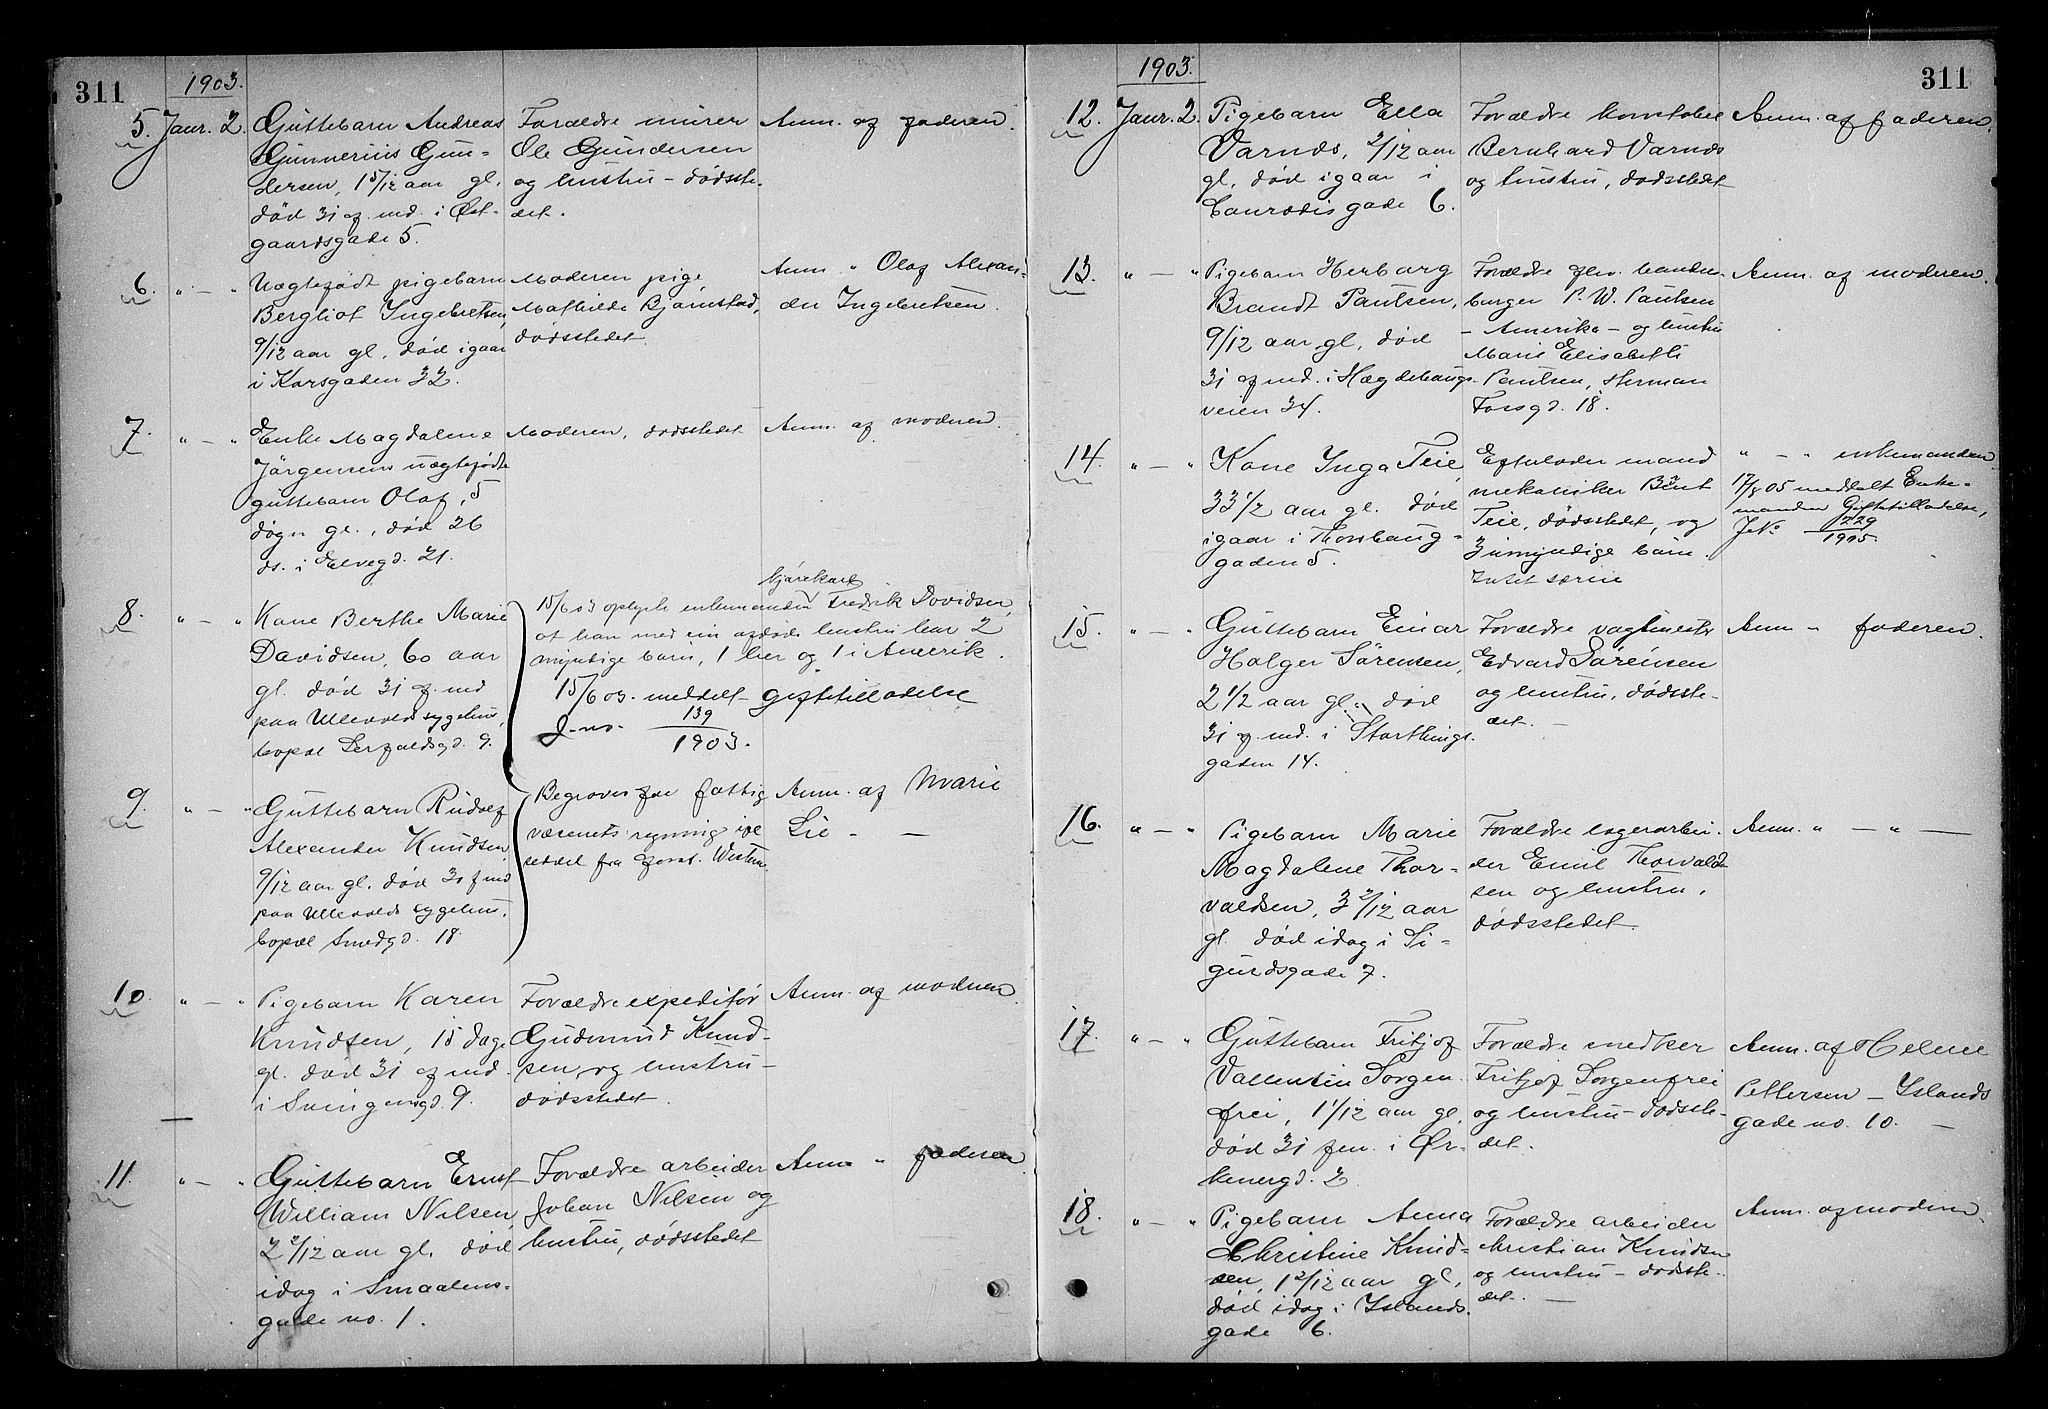 311
1903.
5. Janr. 2. Guttebarn Andreas
Gunnerius Gun-
dersen, 1 5/12 aar gl.
død 31 f. md. i Øst-
gaardsgade 5.
Forældre murer
Ole Gundersen
og hustru - dødsste-
det.
Anm. af faderen.
6. " - " Uægtefødt pigebarn
Bergliot Ingebretsen,
9/12 aar gl. død igaar
i Korsgaden 32.
Moderen pige
Mathilde Bjørnstad,
dødsstedet
Anm " Olaf Alexan-
der Ingebretsen.
7. " - " Enke Magdalene
Jørgensens uægtefødte
guttebarn Olaf, 5
døgn gl., død 26
ds. i Elvegd. 21.
Moderen, dødsstedet
Anm. af moderen.
8. " - " Kone Berthe Marie
Davidsen, 60 aar
gl. død 31 f. md
paa Ullevolds sygehus,
bopæl
kjørekarl
15/6 03 oplyste enkemanden Fredrik Davidsen,
at han med sin afdøde hustru har 2
myndige børn, 1 her og 1 i Amerik.
15/6 03. meddelt giftetilladelse
J-no. 139
1903.
9. " - " Guttebarn Rudolf
Alexander Knudsen
9/12 aar gl. død 31 f md
paa Ullevolds sygehus,
bopæl Smedgd. 18.
Begraves for fattig
væsenets regning ifl
seddel fra
Anm. af Marie
Lie - -
10. " - " Pigebarn Karen
Knudsen, 15 dage
gl. død 31 f md.
i Svingensgd. 9.
Forældre expeditør
Gudmund Knud-
sen og hustru -
dødsstedet.
Anm. af moderen
11. " - " Guttebarn Ernst
William Nilsen,
2 2/12 aar gl. død
idag i Smaalens-
gade no. 1.
Forældre arbeider
Johan Nilsen og
hustru, dødsstedet
Anm " faderen
311
1903.
12. Janr. 2. Pigebarn Ella
Varnds, 2/12 aar
gl. død igaar i
gade 6.
Forældre konstabel
Bernhard Varnds
og hustru, dødsstedet
Anm. af faderen.
13. " - " Pigebarn Herborg
Brandt Paulsen,
9/12 aar gl, død
31 f md. i Hægdehaugs-
veien 34.
Forældre
P. W. Paulsen
- Amerika - og hustru
Marie Elisabeth
Paulsen, Herman
Fossgd. 18.
Anm. af moderen.
14. " - " Kone Inga Teie
33 1/2 aar gl. død
igaar i Thorshaug-
gaden 5.
Efterlader mand
mekaniker Bent
Teie, dødsstedet, og
3 umyndige børn.
Intet særeie
" - " enkemanden
17/8 05 meddelt Enke-
manden Giftetilladelse,
J.No 229
1905.
15. " - " Guttebarn Einar
Holger Sørensen,
2 1/2 aar gl. død
31 f. md. i Storthings-
gaden 14.
Forældre vagtmester
Edvard Sørensen
og hustru, dødsste-
det. -
Anm " faderen.
16. " - " Pigebarn Marie
Magdalene Thor-
valdsen, 3 2/12 aar
gl. død idag i Si-
gurdsgade 7.
Forældre lagerarbei-
der Emil Thorvald-
sen og hustru.
dødsstedet.
Anm. " - " -
17. " - " Guttebarn Fritjof
Vallentin Sorgen-
frei, 1 1/12 aar gl,
død 31 f m. i Ør-
kenergd. 2.
Forældre snedker
Fritjof Sorgenfrei
og hustru - dødsste-
det.
Anm. af Helene
Pettersen - Islands
gade no. 10. -
18. " - " Pigebarn Anna
Christine Knud-
sen, 1 2/12 aar gl,
død idag i Islands
gade 6.
Forældre arbeider
Christian Knudsen
og hustru - dødsste-
det. -
Anm. af moderen.